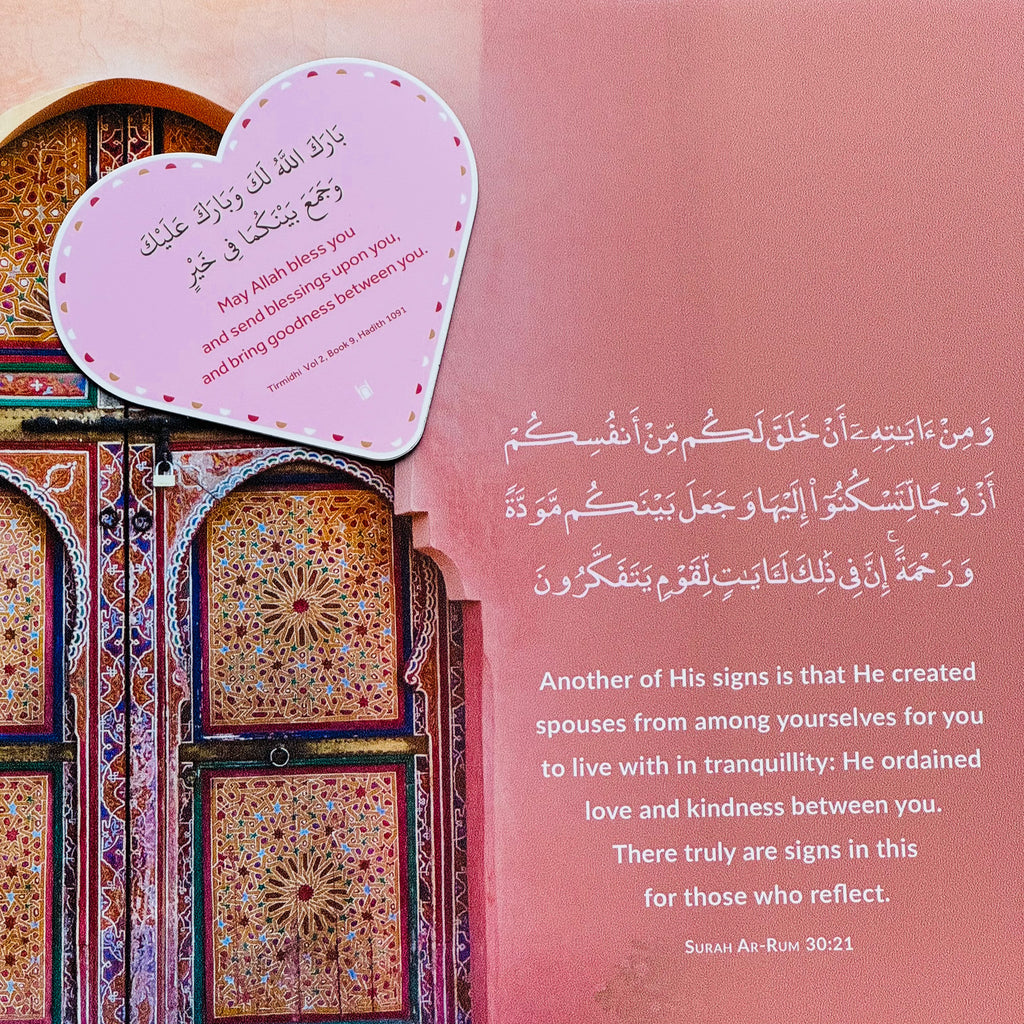 بَارَكَ اللَّهُ لَكَ وَبَارَكَ عَلَيْكَ
وَجَمَعَ بَيْنَكُمَا فِي خَيْرٍ
May Allah bless you
and send blessings upon you,
and bring goodness between you.
Tirmidhi Vol 2, Book 9, Hadith 1091
وَمِنْ ءَايَـٰتِهِۦٓ أَنْ خَلَقَ لَكُم مِّنْ أَنفُسِكُمْ
أَزْوَٰجًا لِّتَسْكُنُوٓا۟ إِلَيْهَا وَجَعَلَ بَيْنَكُم مَّوَدَّةً
وَرَحْمَةً ۚ إِنَّ فِى ذَٰلِكَ لَـَٔايَـٰتٍ لِّقَوْمٍ يَتَفَكَّرُونَ
Another of His signs is that He created
spouses from among yourselves for you
to live with in tranquillity: He ordained
love and kindness between you.
There truly are signs in this
for those who reflect.
Surah Ar-Rum 30:21